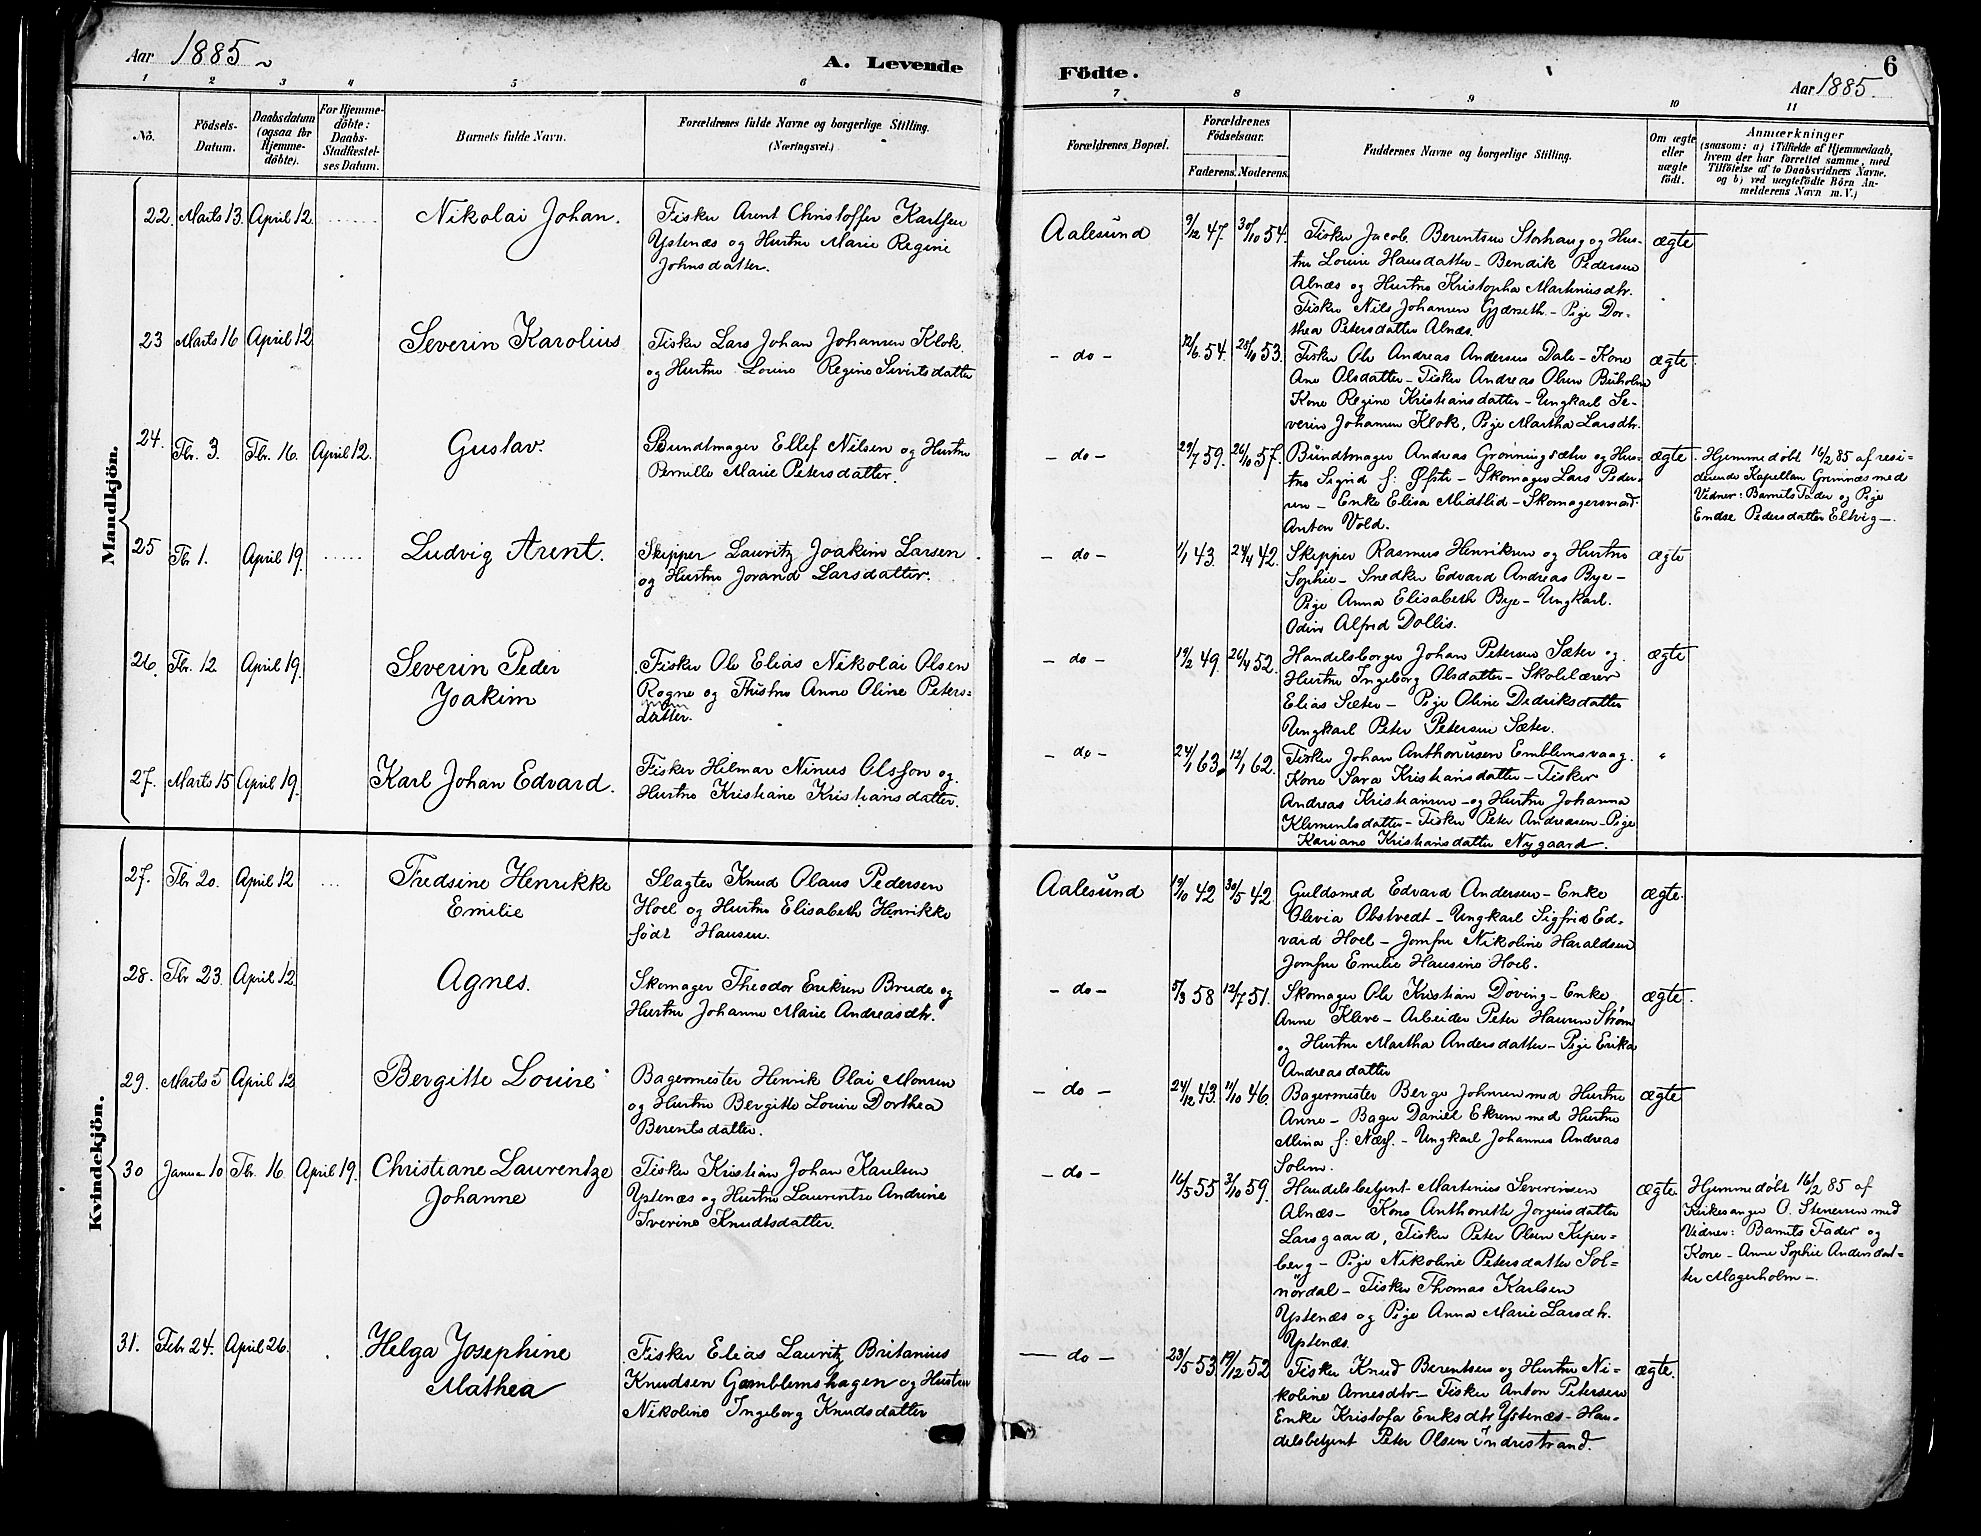 Aar 1885
A. Levende
Födte.
6
Aar 1885.
1 2 3 4 5 6 7 8 9 10 11
No.
Födsels-
Datum.
Daabsdatum
(ogsaa for
Hjemme-
döbte).
For Hjemme-
döbte:
Daabs-
Stadfæstel-
ses Datum.
Barnets fulde Navn.
Forældrenes fulde Navne og borgerlige Stilling.
(Næringsvei.)
Forældrenes Bopæl.
Forældrenes
Födselsaar.
Faderens. Moderens.
Faddernes Navne og borgerlige Stilling.
Om ægte
eller
uægte
födt.
Anmærkninger
(saasom: a) i Tilfælde af Hjemmedaab,
hvem der har forrettet samme, med
Tilföielse af to Daabsvidners Navne,
og b) ved uægtefödte Börn An-
melderens Navn m. V.)
Mandkjön.
22. Marts 13. April 12.
Nikolai Johan.
Fisker Arent Christoffer Karlsen
Ystenæs og Hustru Marie Regine
Johnsdatter.
Aalesund
9/12 47. 30/10 54.
Fisker Jacob Berentsen Storhaug og Hus-
tru Louise Hansdatter - Bendik Pedersen
Alnæs og Hustru Kristopha Martinusdtr.
Fisker Nils Johansen Gjærseth - Pige Dor-
thea Petersdatter Alnæs.
ægte
23 Marts 16 April 12
Severin Karolius
Fisker Lars Johan Johansen Klok
og Hustru Louise Regine Sivertsdatter
- do -
12/6 54. 25/10 53.
Fisker Ole Andreas Andersen Dale - Kone
Ane Olsdatter - Fisker Andreas Olsen Buholm
Kone Regine Kristiansdatter - Ungkarl Se-
verin Johansen Klok, Pige Martha Larsdtr.
ægte
24. Fbr. 3. Fbr. 16. April 12.
Gustav.
Bundtmager Ellef Nilsen og Hustru
Pernille Marie Petersdatter.
- do -
29/7 59. 26/10 57.
Bundtmager Andreas Grønningsæter og Hus-
tru Sigrid f: Øfsti - Skomager Lars Peder-
sen - Enke Elisa Midtlid - Skomagersvend
Anton Vold.
ægte
Hjemmedøbt 16/2 85 af resi-
derende Kapellan Grimnæs med
Vidner: Barnets Fader og Pige
Endse Pedersdatter Eltvig -.
25 Fbr 1. April 19.
Ludvig Arent.
Skipper Lauritz Joakim Larsen
og Hustru Jorand Larsdatter.
- do -
1/1 43. 24/4 42.
Skipper Rasmus Henriksen og Hustru
Sophie - Snedker Edvard Andreas Bye -
Pige Anna Elisabeth Bye - Ungkarl.
Odin Alfred Dollis.
ægte
26. Fbr. 12 April 19.
Severin Peder
Joakim
Fisker Ole Elias Nikolai Olsen
Rogne og Hustru Anne Oline Peters-
datter.
- do -
19/2 49. 26/4 52.
Handelsborger Johan Petersen Sæter og
Hustru Ingeborg Olsdatter - Skolelærer
Elias Sæter - Pige Oline Dedriksdatter
Ungkarl Peter Petersen Sæter.
ægte
27. Marts 15 April 19.
Karl Johan Edvard.
Fisker Hilmar Ninus Olsson og
Hustru Kristiane Kristiansdatter.
- do -
24/1 63. 12/1 62.
Fisker Johan Anthonsen Emblemsvaag.
Kone Sara Kristiansdatter - Fisker
Andreas Kristiansen - og Hustru Johanna
Klementsdatter - Fisker Peter Andreasen - Pige
Kariane Kristiansdatter Nygaard.
"
Kvindekjön.
27. Fbr 20. April 12
Fredsine Henrikke
Emilie
Slagter Knud Olaus Pedersen
Hoel og Hustru Elisabeth Henrikke
født Hansen.
Aalesund
19/10 42 30/5 42.
Guldsmed Edvard Andersen - Enke
Olevia Obstvedt - Ungkarl Sigfrid Ed-
vard Hoel - Jomfru Nikoline Haraldsen
Jomfru Emilie Hansine Hoel.
ægte.
28. Fbr 23. April 12.
Agnes.
Skomager Theodor Eriksen Brude og
Hustru Johanne Marie Andreasdtr.
- do -
5/3 58 12/7 51.
Skomager Ole Kristian Döving - Enke
Anne Kleve - Arbeider Peter Hansen Strøm
og Hustru Martha Andersdatter - Pige Erika
Andreasdatter
ægte.
29. Marts 5 April 12
Bergitte Louise
Bagermester Henrik Olai Monsen
og Hustru Bergitte Louise Dorthea
Berentsdatter.
- do -
24/12 43. 11/10 46.
Bagermester Berge Johnsen med Hustru
Anne - Bager Daniel Ekrem med Hustru
Mina f: Næss. - Ungkarl Johannes Andreas
Solem.
ægte
30 Januar 10 Fbr. 16 April 19.
Christiane Laurentze
Johanne
Fisker Kristian Johan Karlsen
Ystenæs og Hustru Laurentse Andrine
Iverine Knudtsdatter.
- do -
16/5 55 3/10 59.
Handelsbetjent Martinius Severinsen
Alnæs - Kone Anthonette Jørginsdatter
Larsgaard, Fisker Peter Olsen Kiper-
berg - Pige Nikoline Petersdatter Sol-
nördal - Fisker Thomas Karlsen
Ystenæs og Pige Anna Marie Larsdtr.
Ystenæs.
ægte
Hjemmedøbt 16/2 85 af
Kirkesanger O. Stenersen med
Vidner: Barnets Fader og
Kone - Anne Sophie Andersdat-
ter Magerholm -.
31. Febr 24. April 26.
Helga Josephine
Mathea
Fisker Elias Lauritz Britanius
Knudsen Gamblemshagen og Hustru
Nikoline Ingeborg Knudsdatter
- do -
23/5 53. 19/12 52
Fisker Knud Berentsen og Hustru Ni-
koline Arnesdtr - Fisker Anton Petersen
Enke Kristofa Eriksdtr Ystenæs - Han-
delsbetjent Peter Olsen Indrestrand.
ægte.